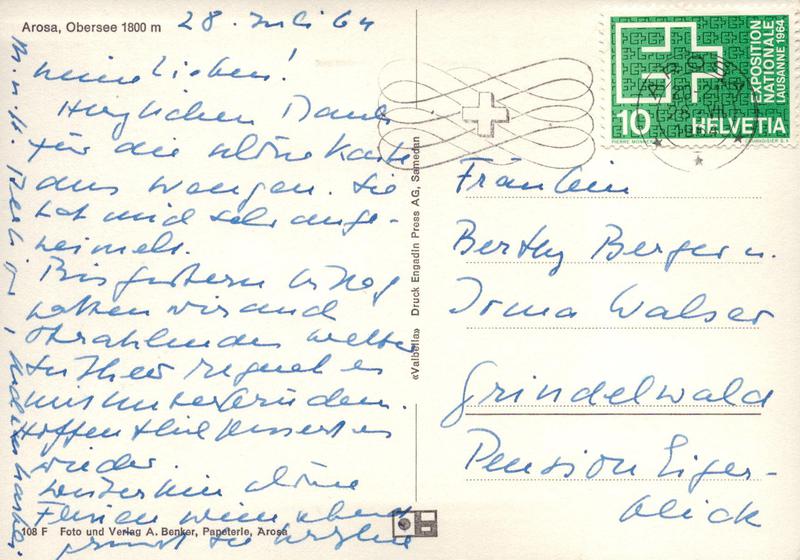 Arosa, Obersee 1800 m
28. Juli 64
meine Lieben!
Herzlichen Dank
für die schöne Karte
aus Wengen. Sie
hat mich sehr ange-
heimelt.
Bis gestern
hatten wir auch
strahlendes Wetter
seither regnet es
mit
Hoffentlich bessert es
wieder.
weiterhin schöne
Ferien
grüsst Sie herzlich
EXPOSITION
NATIONALE
LAUSANNE 1964
10 HELVETIA
Fräulein
Berthy Berger u.
Irma Walser
Grindelwald
Pension Eiger-
blick
«Valbella» Druck Engadin Press AG, Samedan
108 F Foto und Verlag A. Benker, Papeterie, Arosa